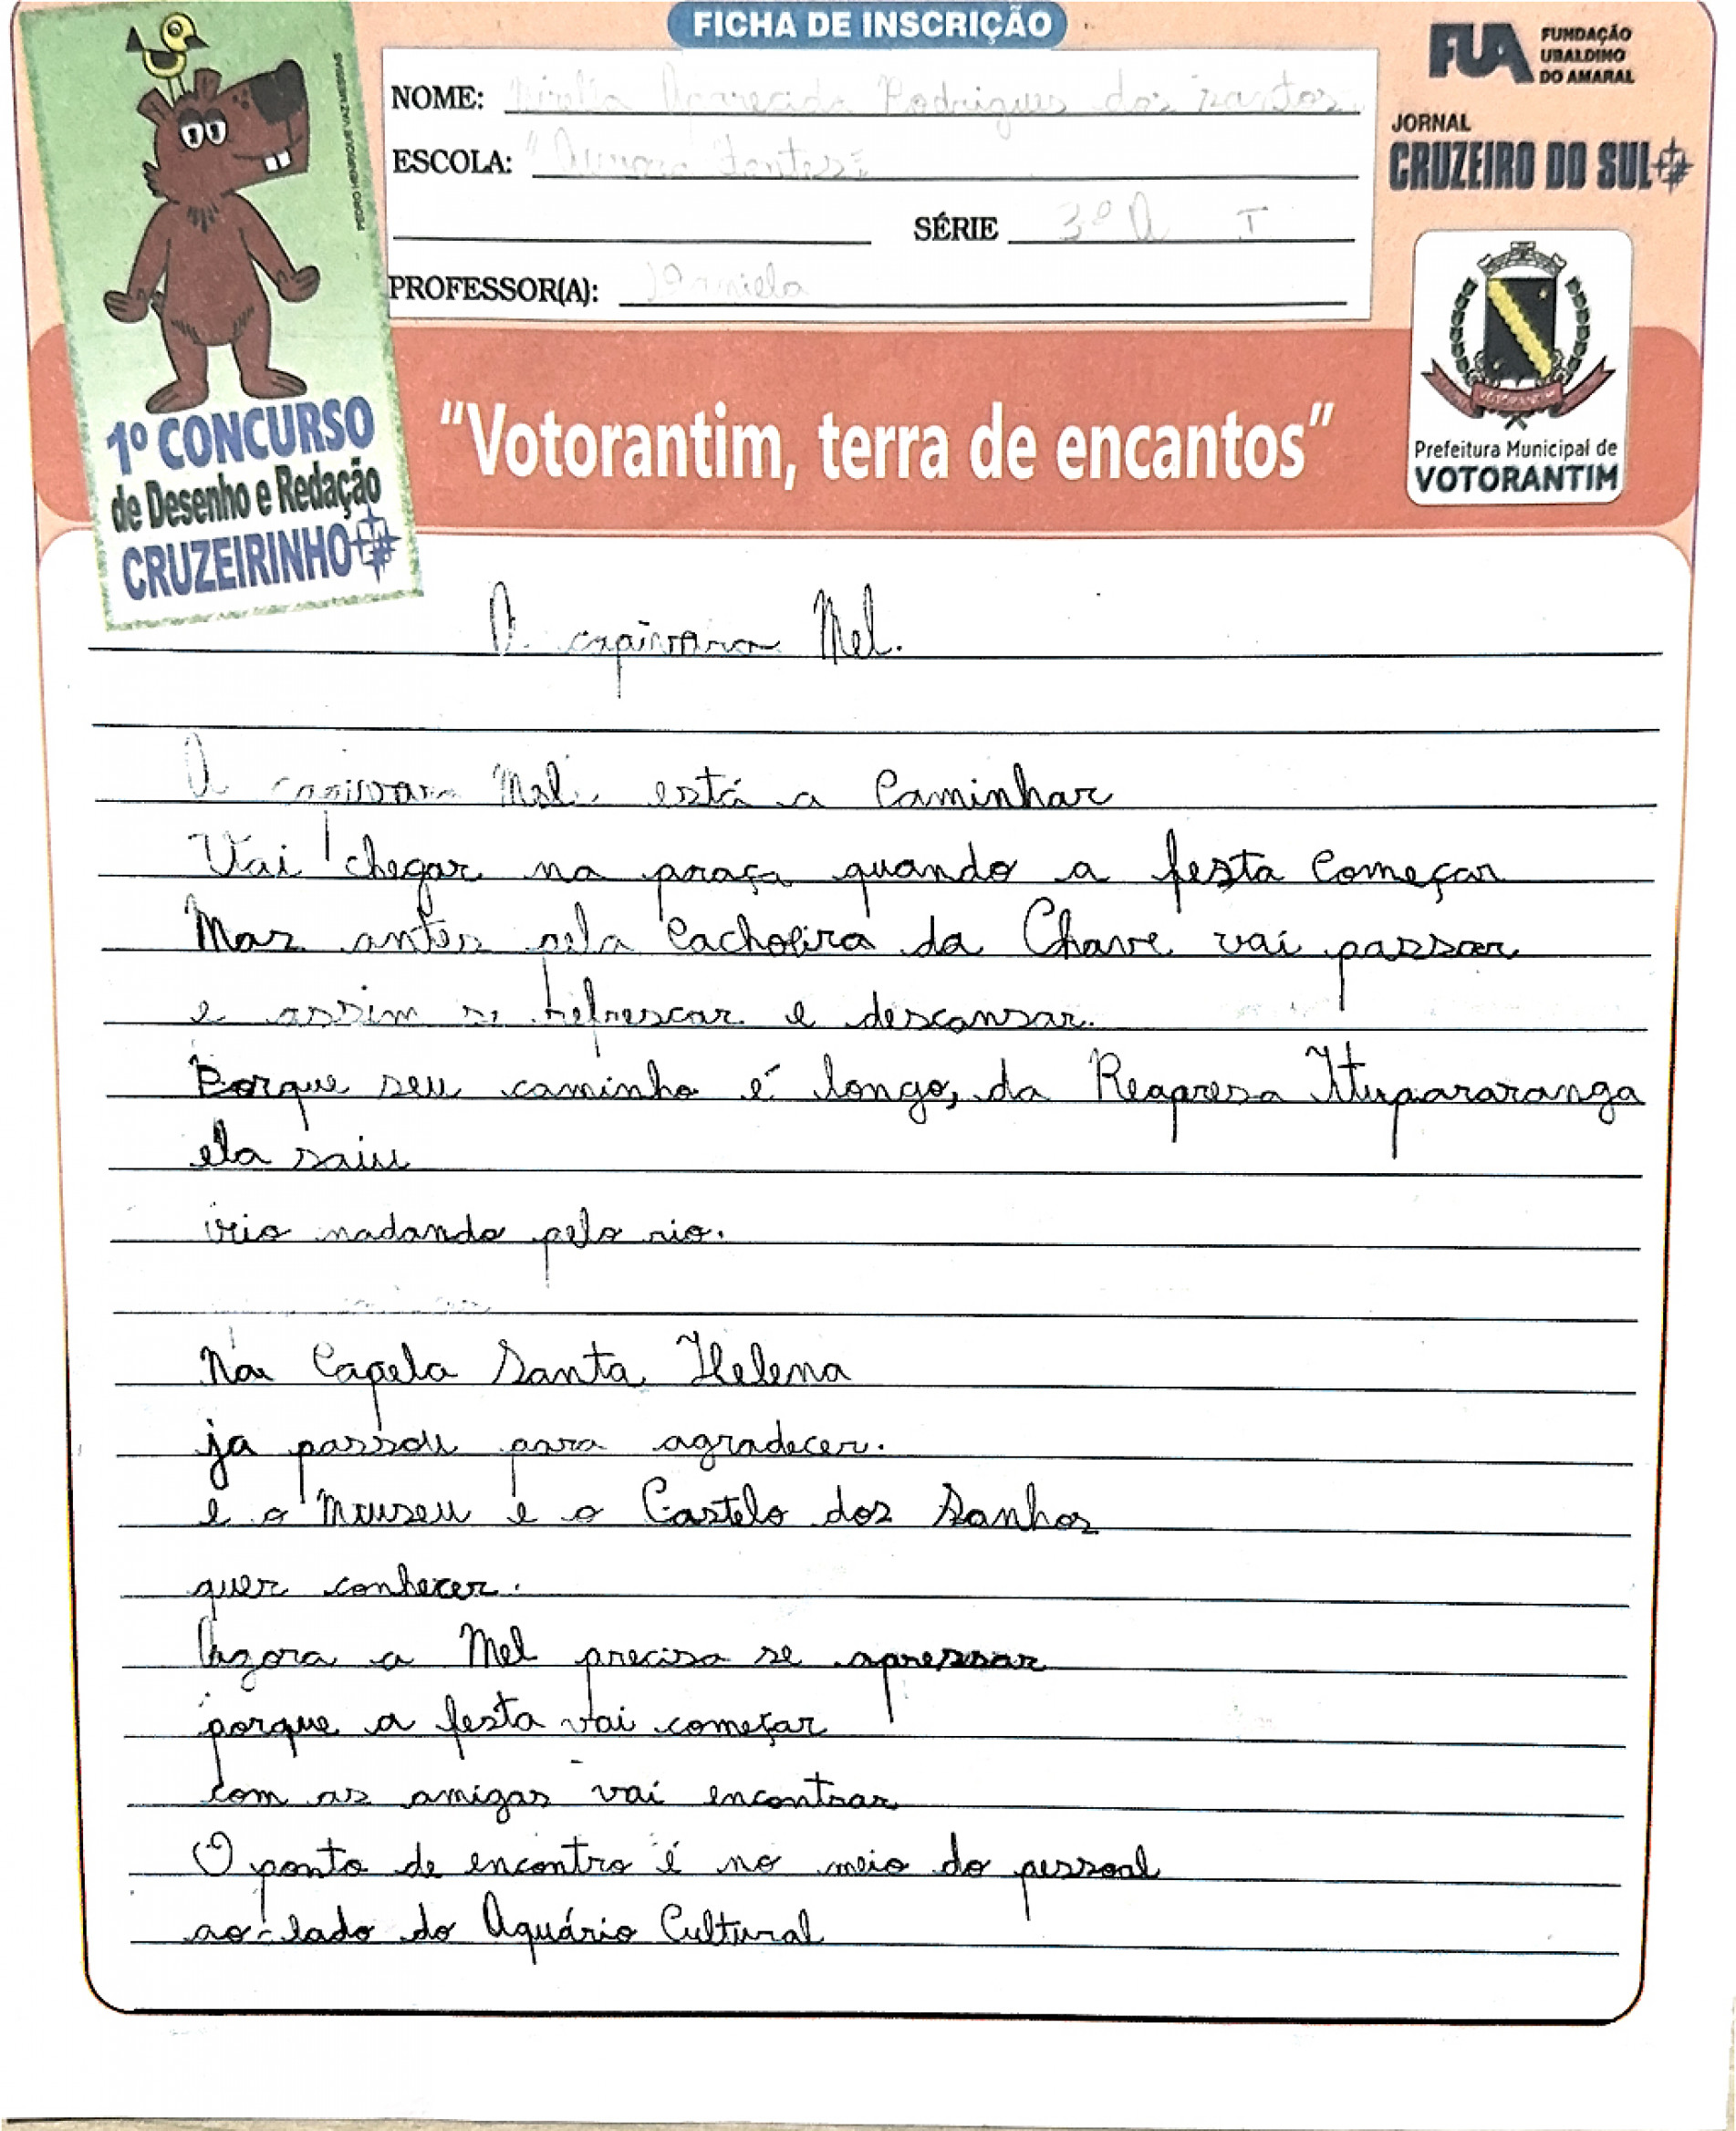 FICHA DE INSCRIÇÃO
FUA FUNDAÇÃO
UBALDINO
DO AMARAL
JORNAL
CRUZEIRO DO SUL
NOME: Aparecida Rodrigues dos Santos
ESCOLA:
SÉRIE 3º A I
PROFESSOR(A): Daniela
PEDRO HENRIQUE VAZ MESSIAS
1º CONCURSO
de Desenho e Redação
CRUZEIRINHO
"Votorantim, terra de encantos"
VOTORANTIM
Prefeitura Municipal de
VOTORANTIM
A capivara Mel.
A capivara Mel, está a Caminhar
Vai chegar na praça quando a festa Começar
Mas antes pela Cachoeira da Chave vai passar
e assim se refrescar e descansar.
Porque seu caminho é longo, da Reapresa Itupararanga
ela saiu
veio nadando pelo rio.
Na Capela Santa Helena
ja passou para agradecer.
e o Museu e o Castelo dos Sonhos
quer conhecer.
Agora a Mel precisa se apressar
porque a festa vai começar
com as amigas vai encontrar
O ponto de encontro é no meio do pessoal
ao lado do Aquário Cultural